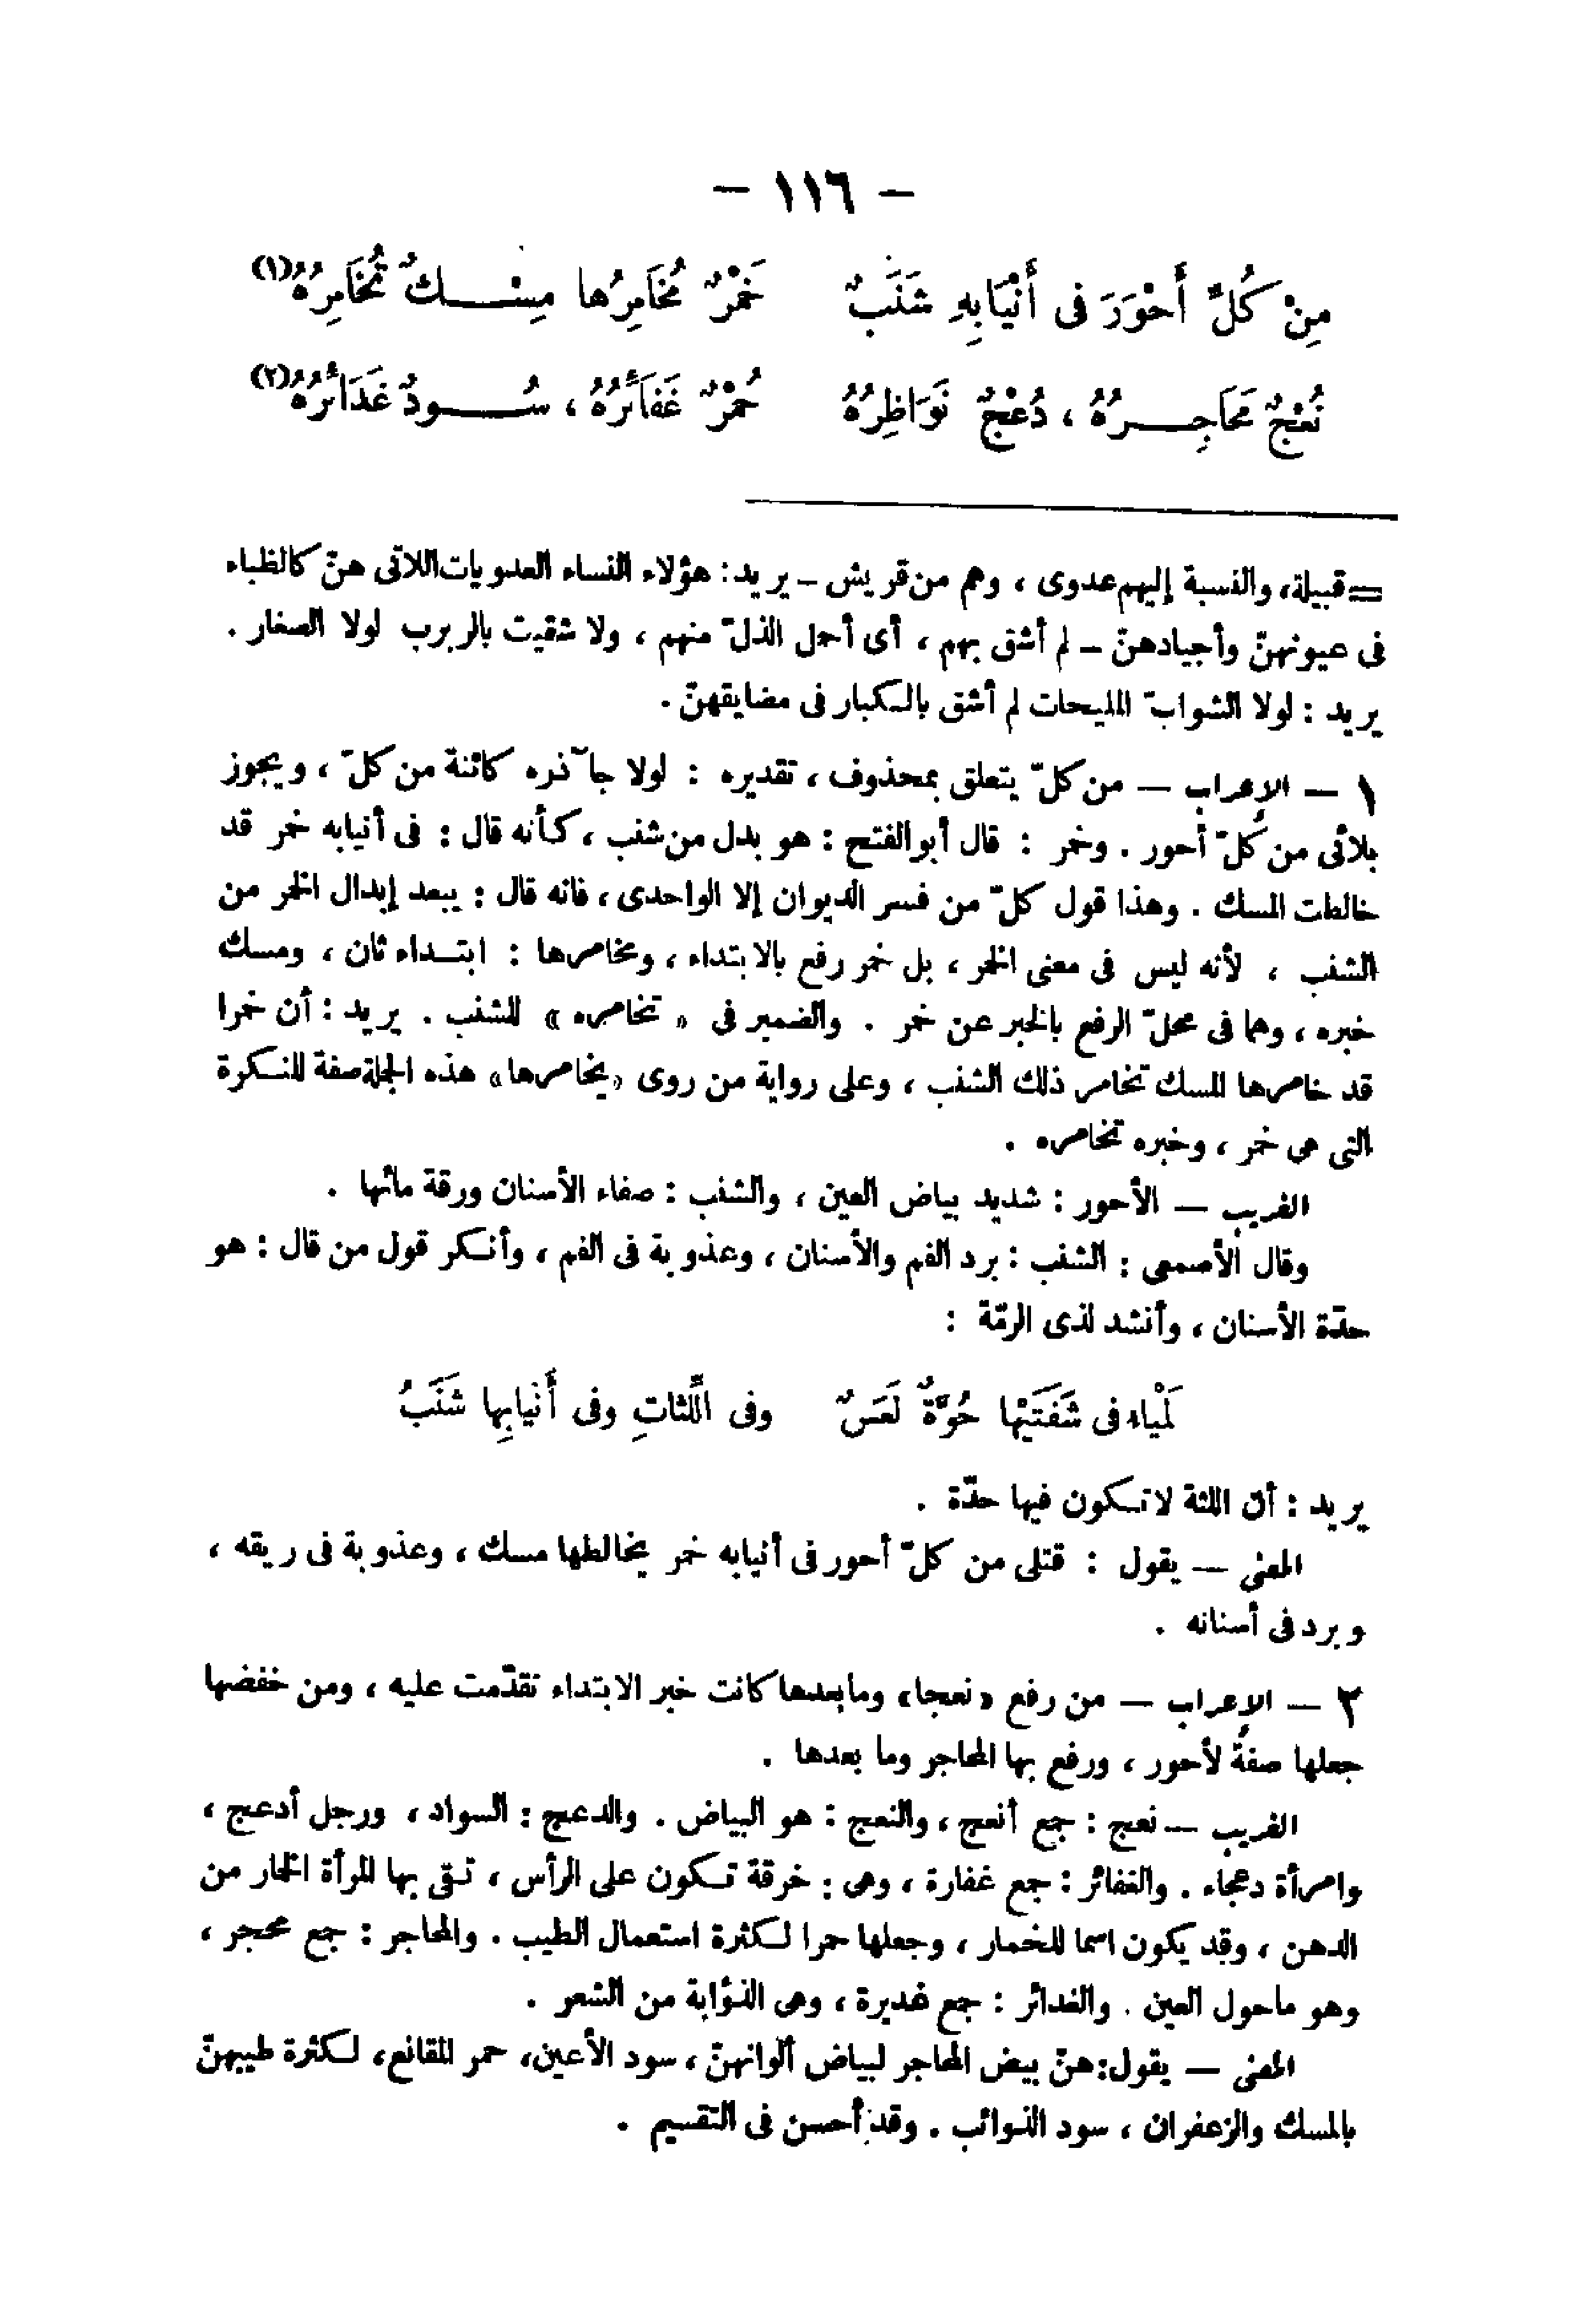 - ١١٦ -
مِنْ كُلِّ أَحْوَرَ فى أَنْيَابِهِ شَنَبٌ خَمْرٌ مُخَامِرُها مِسْـكٌ تُخَامِرُهُ(١)
نُعْجٌ مَحَاجِـرُهُ ، دُعْجٌ نَوَاظِرُهُ حُمْرٌ غَفَائرُهُ ، سُـودٌ غَدَائرُهُ(٢)
= قبيلة، والنسبة إليهم عدوى ، وهم من قريش – يريد : هؤلاء النساء العدويات اللاتى هنّ كالظباء
فى عيونهنّ وأجيادهنّ – لم أشق بهم ، أى أحمل الذلّ منهم ، ولا شقيت بالربرب لولا الصغار .
يريد : لولا الشوابّ المليحات لم أشق بالكبار فى مضايقهنّ .
١ – الإعراب – من كلّ يتعلق بمحذوف ، تقديره : لولا جآذره كائنة من كلّ ، ويجوز
بلائى من كلّ أحور . وخمر : قال أبو الفتح : هو بدل من شنب ، كأنه قال : فى أنيابه خمر قد
خالطت المسك . وهذا قول كلّ من فسر الديوان إلا الواحدى ، فانه قال : يبعد إبدال الخمر من
الشنب ، لأنه ليس فى معنى الخمر ، بل خمر رفع بالابتداء ، ومخامرها : ابتـداء ثان ، ومسك
خبره ، وهما فى محلّ الرفع بالخبر عن خمر . والضمير فى « تخامره » للشنب . يريد : أن خمرا
قد خامرها المسك تخامر ذلك الشنب ، وعلى رواية من روى «يخامرها» هذه الجملة صفة للنكرة
التى هى خمر ، وخبره تخامره .
الغريب – الأحور : شديد بياض العين ، والشنب : صفاء الأسنان ورقة مائها .
وقال الأصمعى : الشنب : برد الفم والأسنان ، وعذوبة فى الفم ، وأنكر قول من قال : هو
حدّة الأسنان ، وأنشد لذى الرمّة :
لَمْياء فى شَفَتَيْها حُوَّةٌ لَعَسٌ وفى اللِّثاتِ وفى أَنْيابِها شَنَبُ
يريد : أن اللثة لاتكون فيها حدّة .
المعنى – يقول : قتلى من كلّ أحور فى أنيابه خمر يخالطها مسك ، وعذوبة فى ريقه ،
وبرد فى أسنانه .
٢ – الإعراب – من رفع «نعجا» ومابعدها كانت خبر الابتداء تقدّمت عليه ، ومن خفضها
جعلها صفة لأحور ، ورفع بها المحاجر وما بعدها .
الغريب – نعج : جمع أنعج ، والنعج : هو البياض . والدعج : السواد ، ورجل أدعج ،
وامرأة دعجاء . والغفائر : جمع غفارة ، وهى : خرقة تكون على الرأس ، تقى بها المرأة الخمار من
الدهن ، وقد يكون اسما للخمار ، وجعلها حمرا لكثرة استعمال الطيب . والمحاجر : جمع محجر ،
وهو ماحول العين . والغدائر : جمع غديرة ، وهى الذؤابة من الشعر .
المعنى – يقول: هنّ بيض المحاجر لبياض ألوانهنّ ، سود الأعين، حمر المقانع، لكثرة طيبهنّ
بالمسك والزعفران ، سود الذوائب . وقد أحسن فى التقسيم .